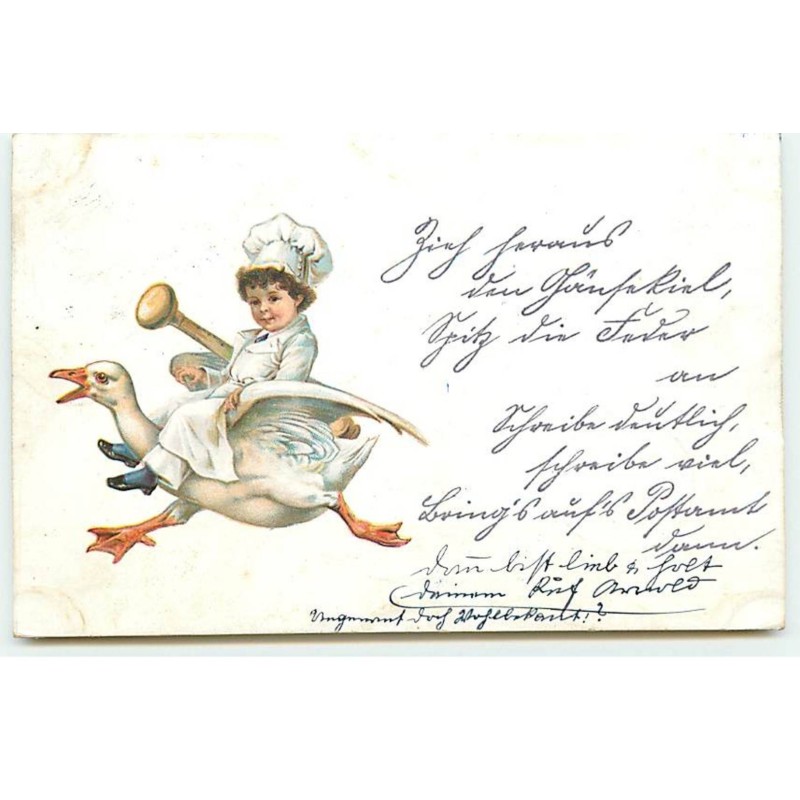 Zieh heraus
den Gänsekiel,
Spitz die Feder
an
Schreibe deutlich,
schreibe viel,
Bring's auf's Postamt
dann.
dann bist lieb & holt
deinem Arnold
Ungenannt doch Wohlbekant!?